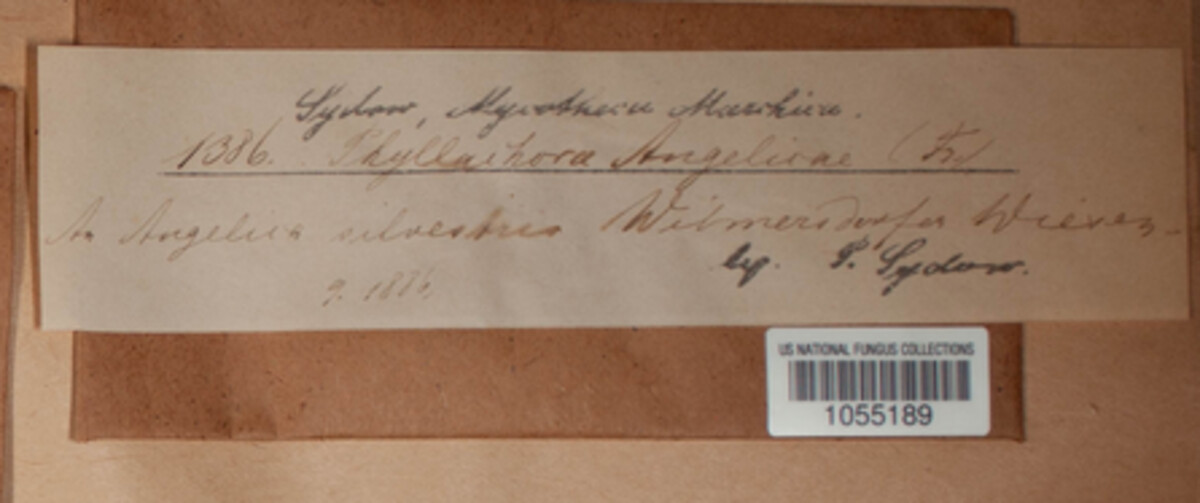 Sydow, Mycotheca Marchica.
1386. Phyllachora Angelicae (Fr.)
An Angelica silvestris Wilmersdorfer Wiesen
leg. P. Sydow.
9. 1886.
US NATIONAL FUNGUS COLLECTIONS
1055189